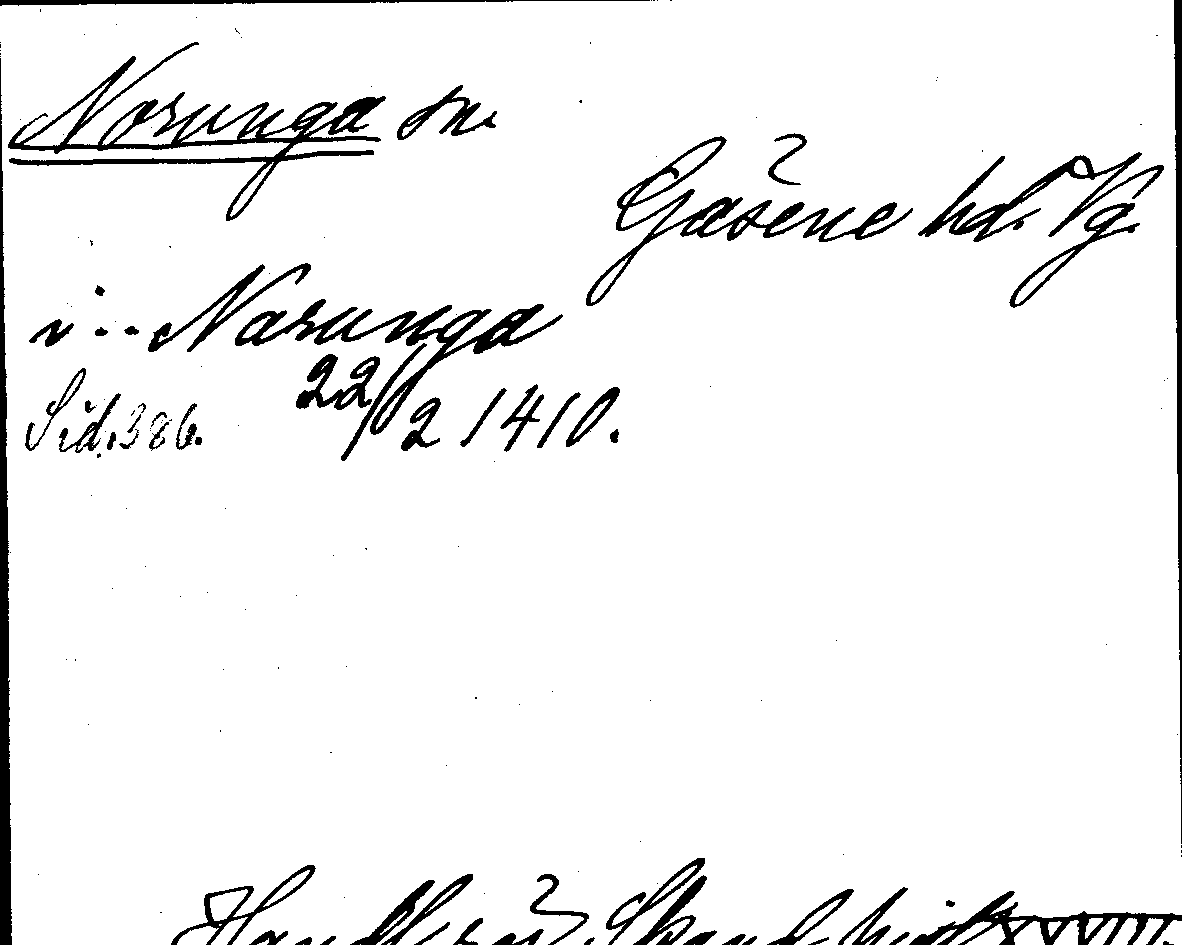 Norunga sn.
Gäsene hd. Vg.
i .. Narunga
Sid. 386. 22/2 1410.
Handl. rör. Skand. hist. XXVIII.